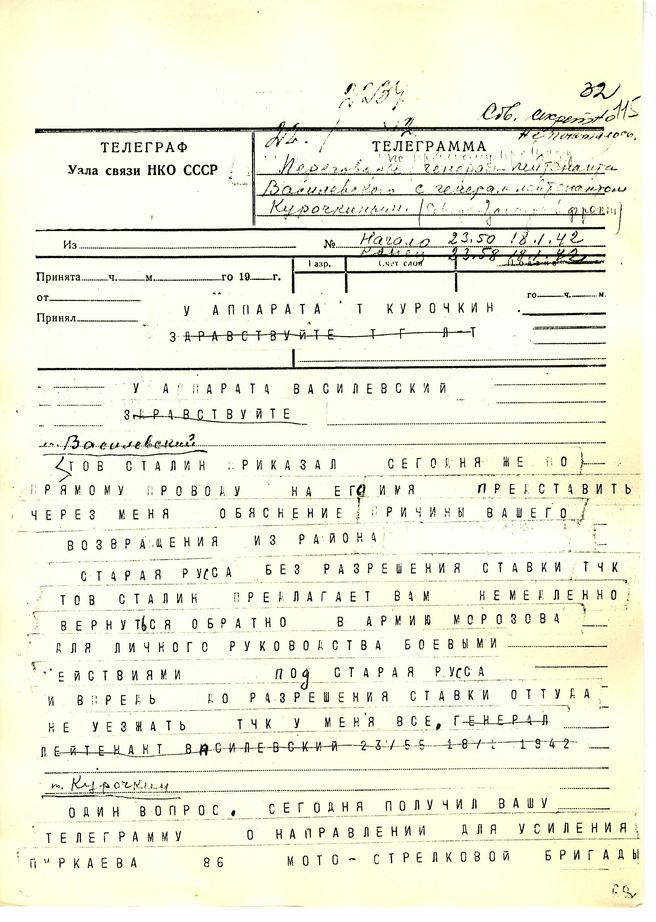 32
Сов. секретно 115
Не печаталось.
ТЕЛЕГРАФ
Узла связи НКО СССР
ТЕЛЕГРАММА
по прямому проводу
Переговоры генерал-лейтенанта
Василевского с генерал-лейтенантом
Курочкиным. (Северо-Западный фронт)
Из № Начало 23.50 18.1.42
Конец 23.58 18.1.42
Принята ч. м. го 19 г.
Разр. Счет слов
от го ч. м.
Принял
У АППАРАТА Т КУРОЧКИН
ЗДРАВСТВУЙТЕ Т Г Л-Т
У АППАРАТА ВАСИЛЕВСКИЙ
ЗДРАВСТВУЙТЕ
т. Василевский
ТОВ СТАЛИН ПРИКАЗАЛ СЕГОДНЯ ЖЕ ПО
ПРЯМОМУ ПРОВОДУ НА ЕГО ИМЯ ПРЕДСТАВИТЬ
ЧЕРЕЗ МЕНЯ ОБЯСНЕНИЕ ПРИЧИНЫ ВАШЕГО
ВОЗВРАЩЕНИЯ ИЗ РАЙОНА
СТАРАЯ РУССА БЕЗ РАЗРЕШЕНИЯ СТАВКИ ТЧК
ТОВ СТАЛИН ПРЕДЛАГАЕТ ВАМ НЕМЕДЛЕННО
ВЕРНУТЬСЯ ОБРАТНО В АРМИЮ МОРОЗОВА
ДЛЯ ЛИЧНОГО РУКОВОДСТВА БОЕВЫМИ
ДЕЙСТВИЯМИ под СТАРАЯ РУССА
И ВПРЕДЬ ДО РАЗРЕШЕНИЯ СТАВКИ ОТТУДА
НЕ УЕЗЖАТЬ ТЧК У МЕНЯ ВСЕ, ГЕНЕРАЛ
ЛЕЙТЕНАНТ ВАСИЛЕВСКИЙ 23/55 18/1 1942
т. Курочкин
ОДИН ВОПРОС. СЕГОДНЯ ПОЛУЧИЛ ВАШУ
ТЕЛЕГРАММУ О НАПРАВЛЕНИИ ДЛЯ УСИЛЕНИЯ
ПУРКАЕВА 86 МОТО-СТРЕЛКОВОЙ БРИГАДЫ